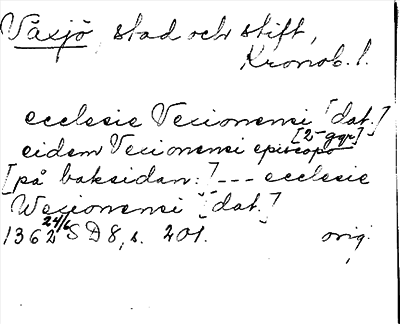 Växjö, stad och stift,
Kronob. l.
ecclesie Vecionensi [dat.]
eidem Vecionensi episcopo [2 ggr]
[på baksidan:] --- ecclesie
Wecionensi [dat.]
1362 24/6 SD 8, s. 201. orig.